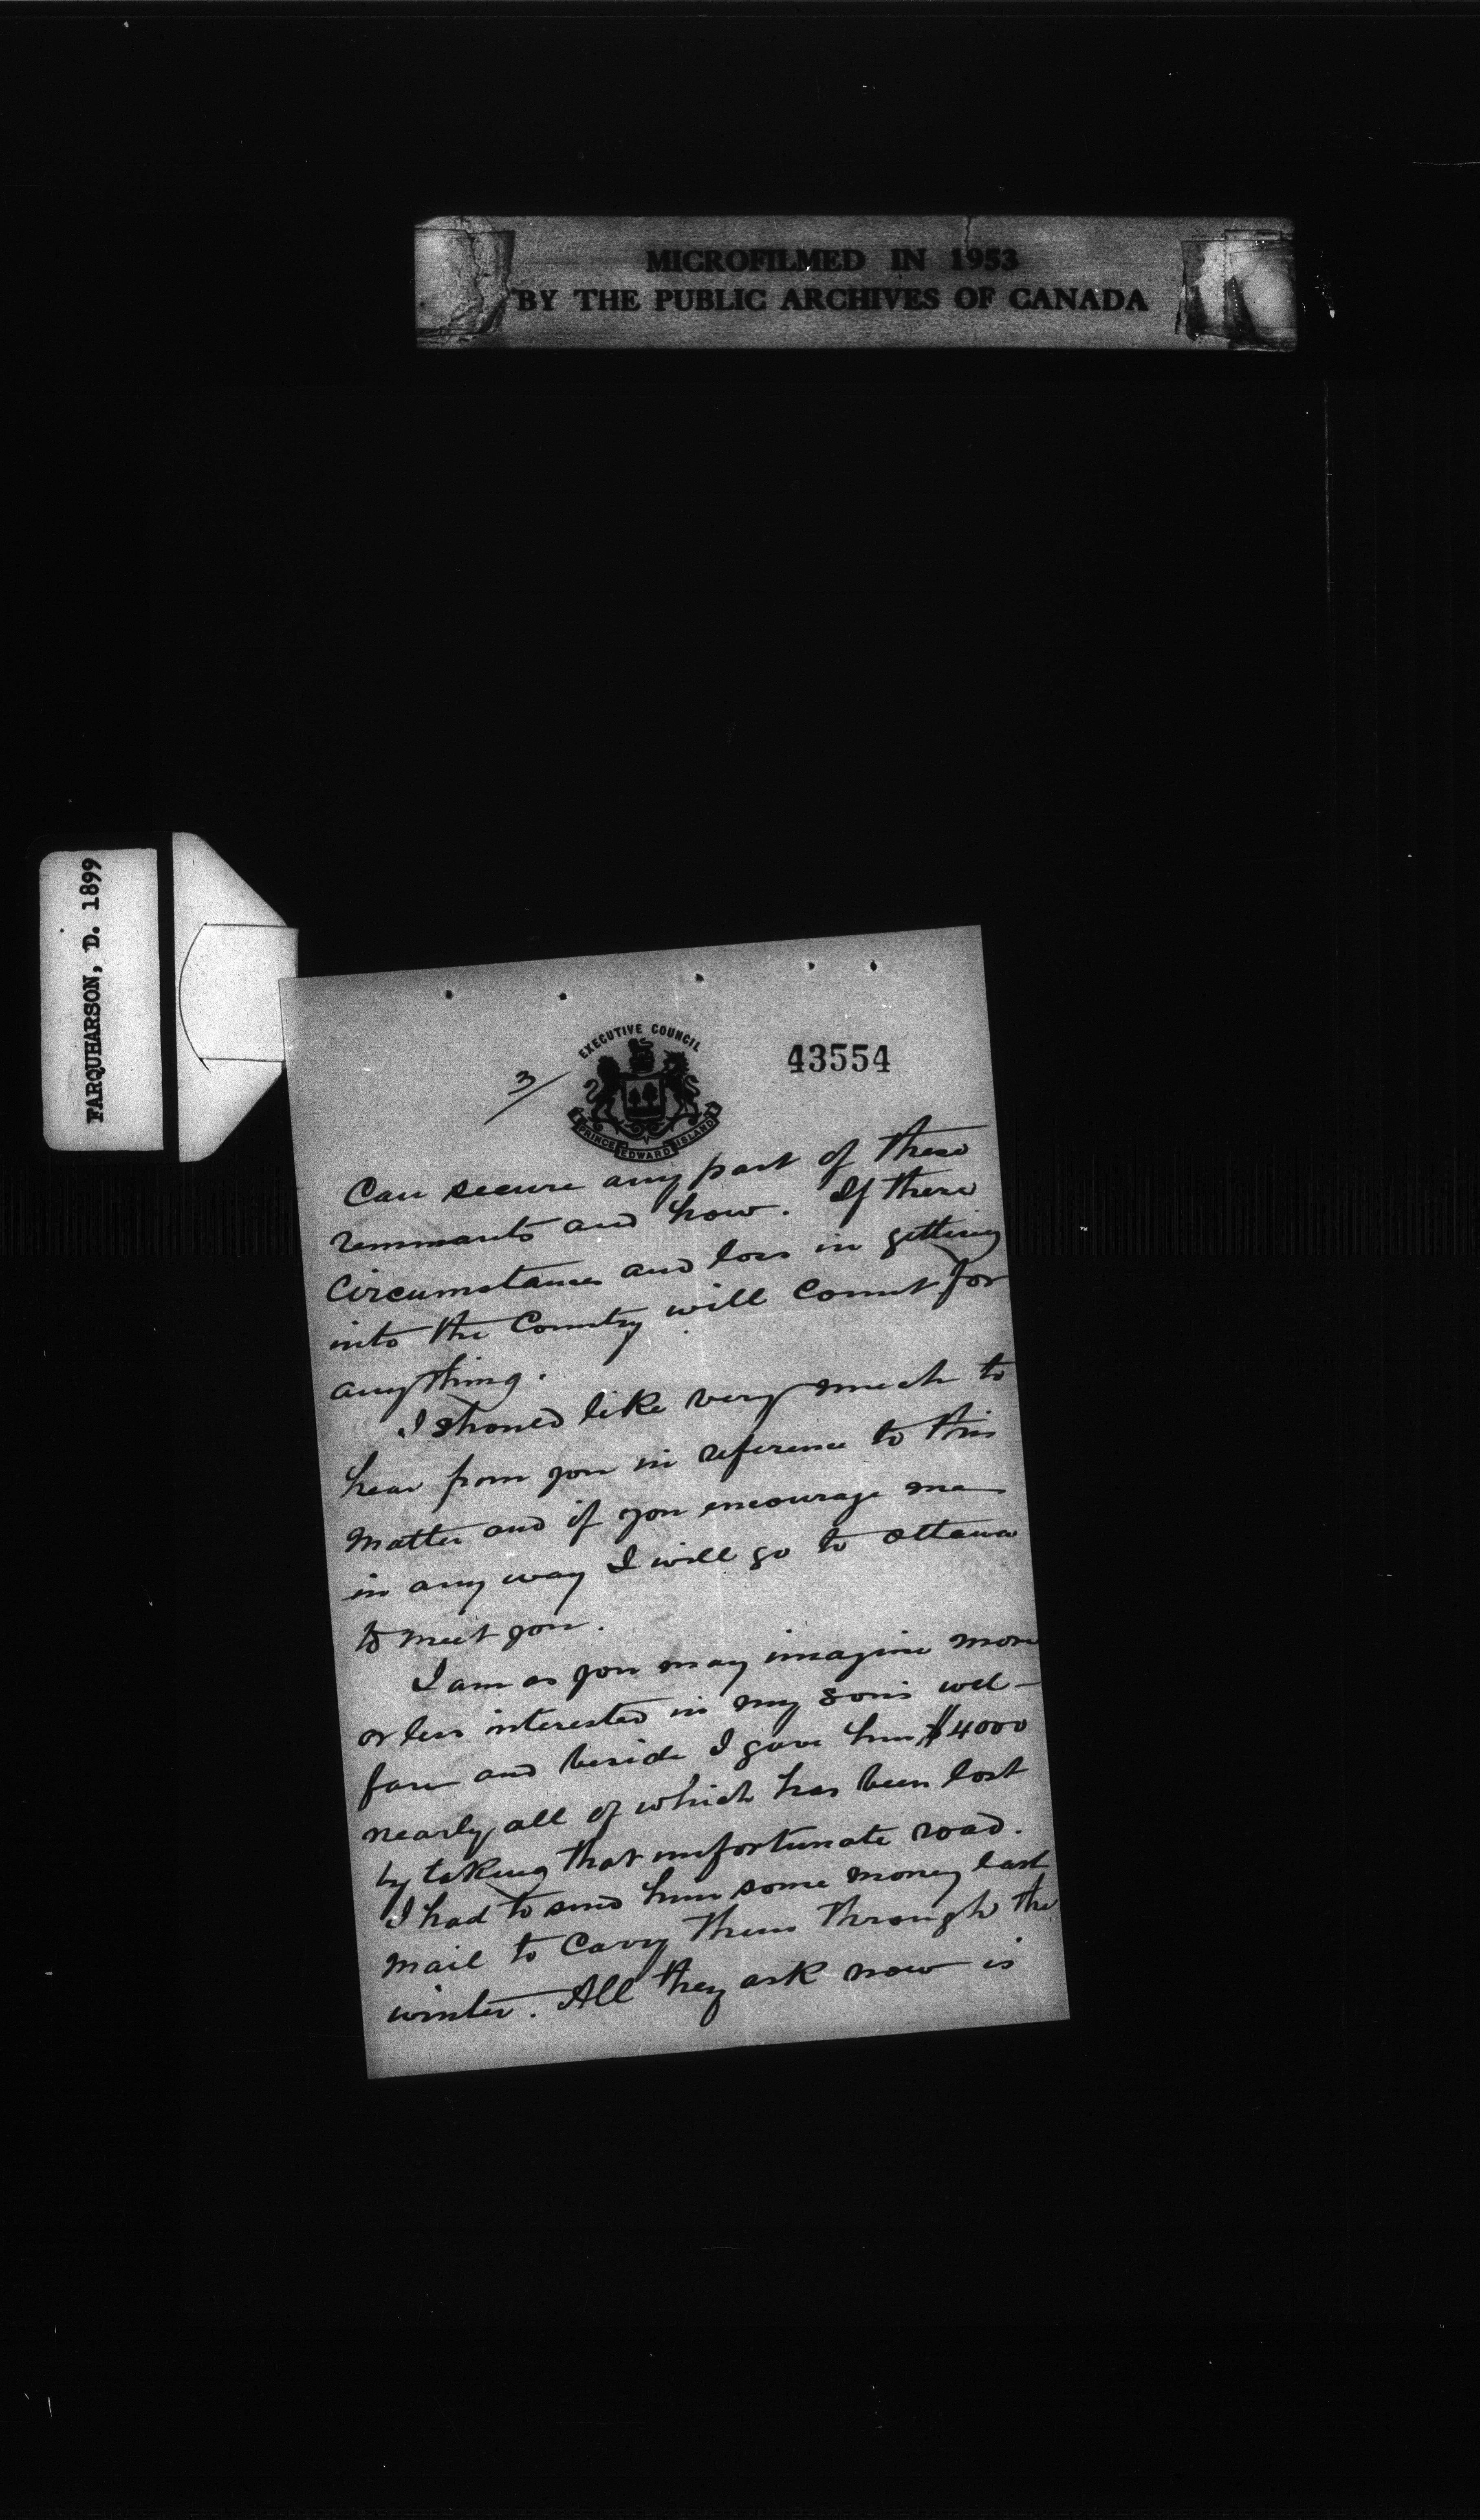 MICROFILMED IN 1953
BY THE PUBLIC ARCHIVES OF CANADA
FARQUHARSON, D. 1899
EXECUTIVE COUNCIL
PRINCE EDWARD ISLAND
3/
43554
Can secure any part of these
remnants and how. If there
Circumstances and loss in getting
into the Country will Count for
anything.
I should like very much to
hear from you in reference to this
Matter and if you encourage me
in any way I will go to Ottawa
to meet you.
I am as you may imagine more
or less interested in my sons wel-
fare and beside I gave him $4000
nearly all of which has been lost
by taking that unfortunate road.
I had to send him some money last
mail to Carry them through the
winter. All they ask now is